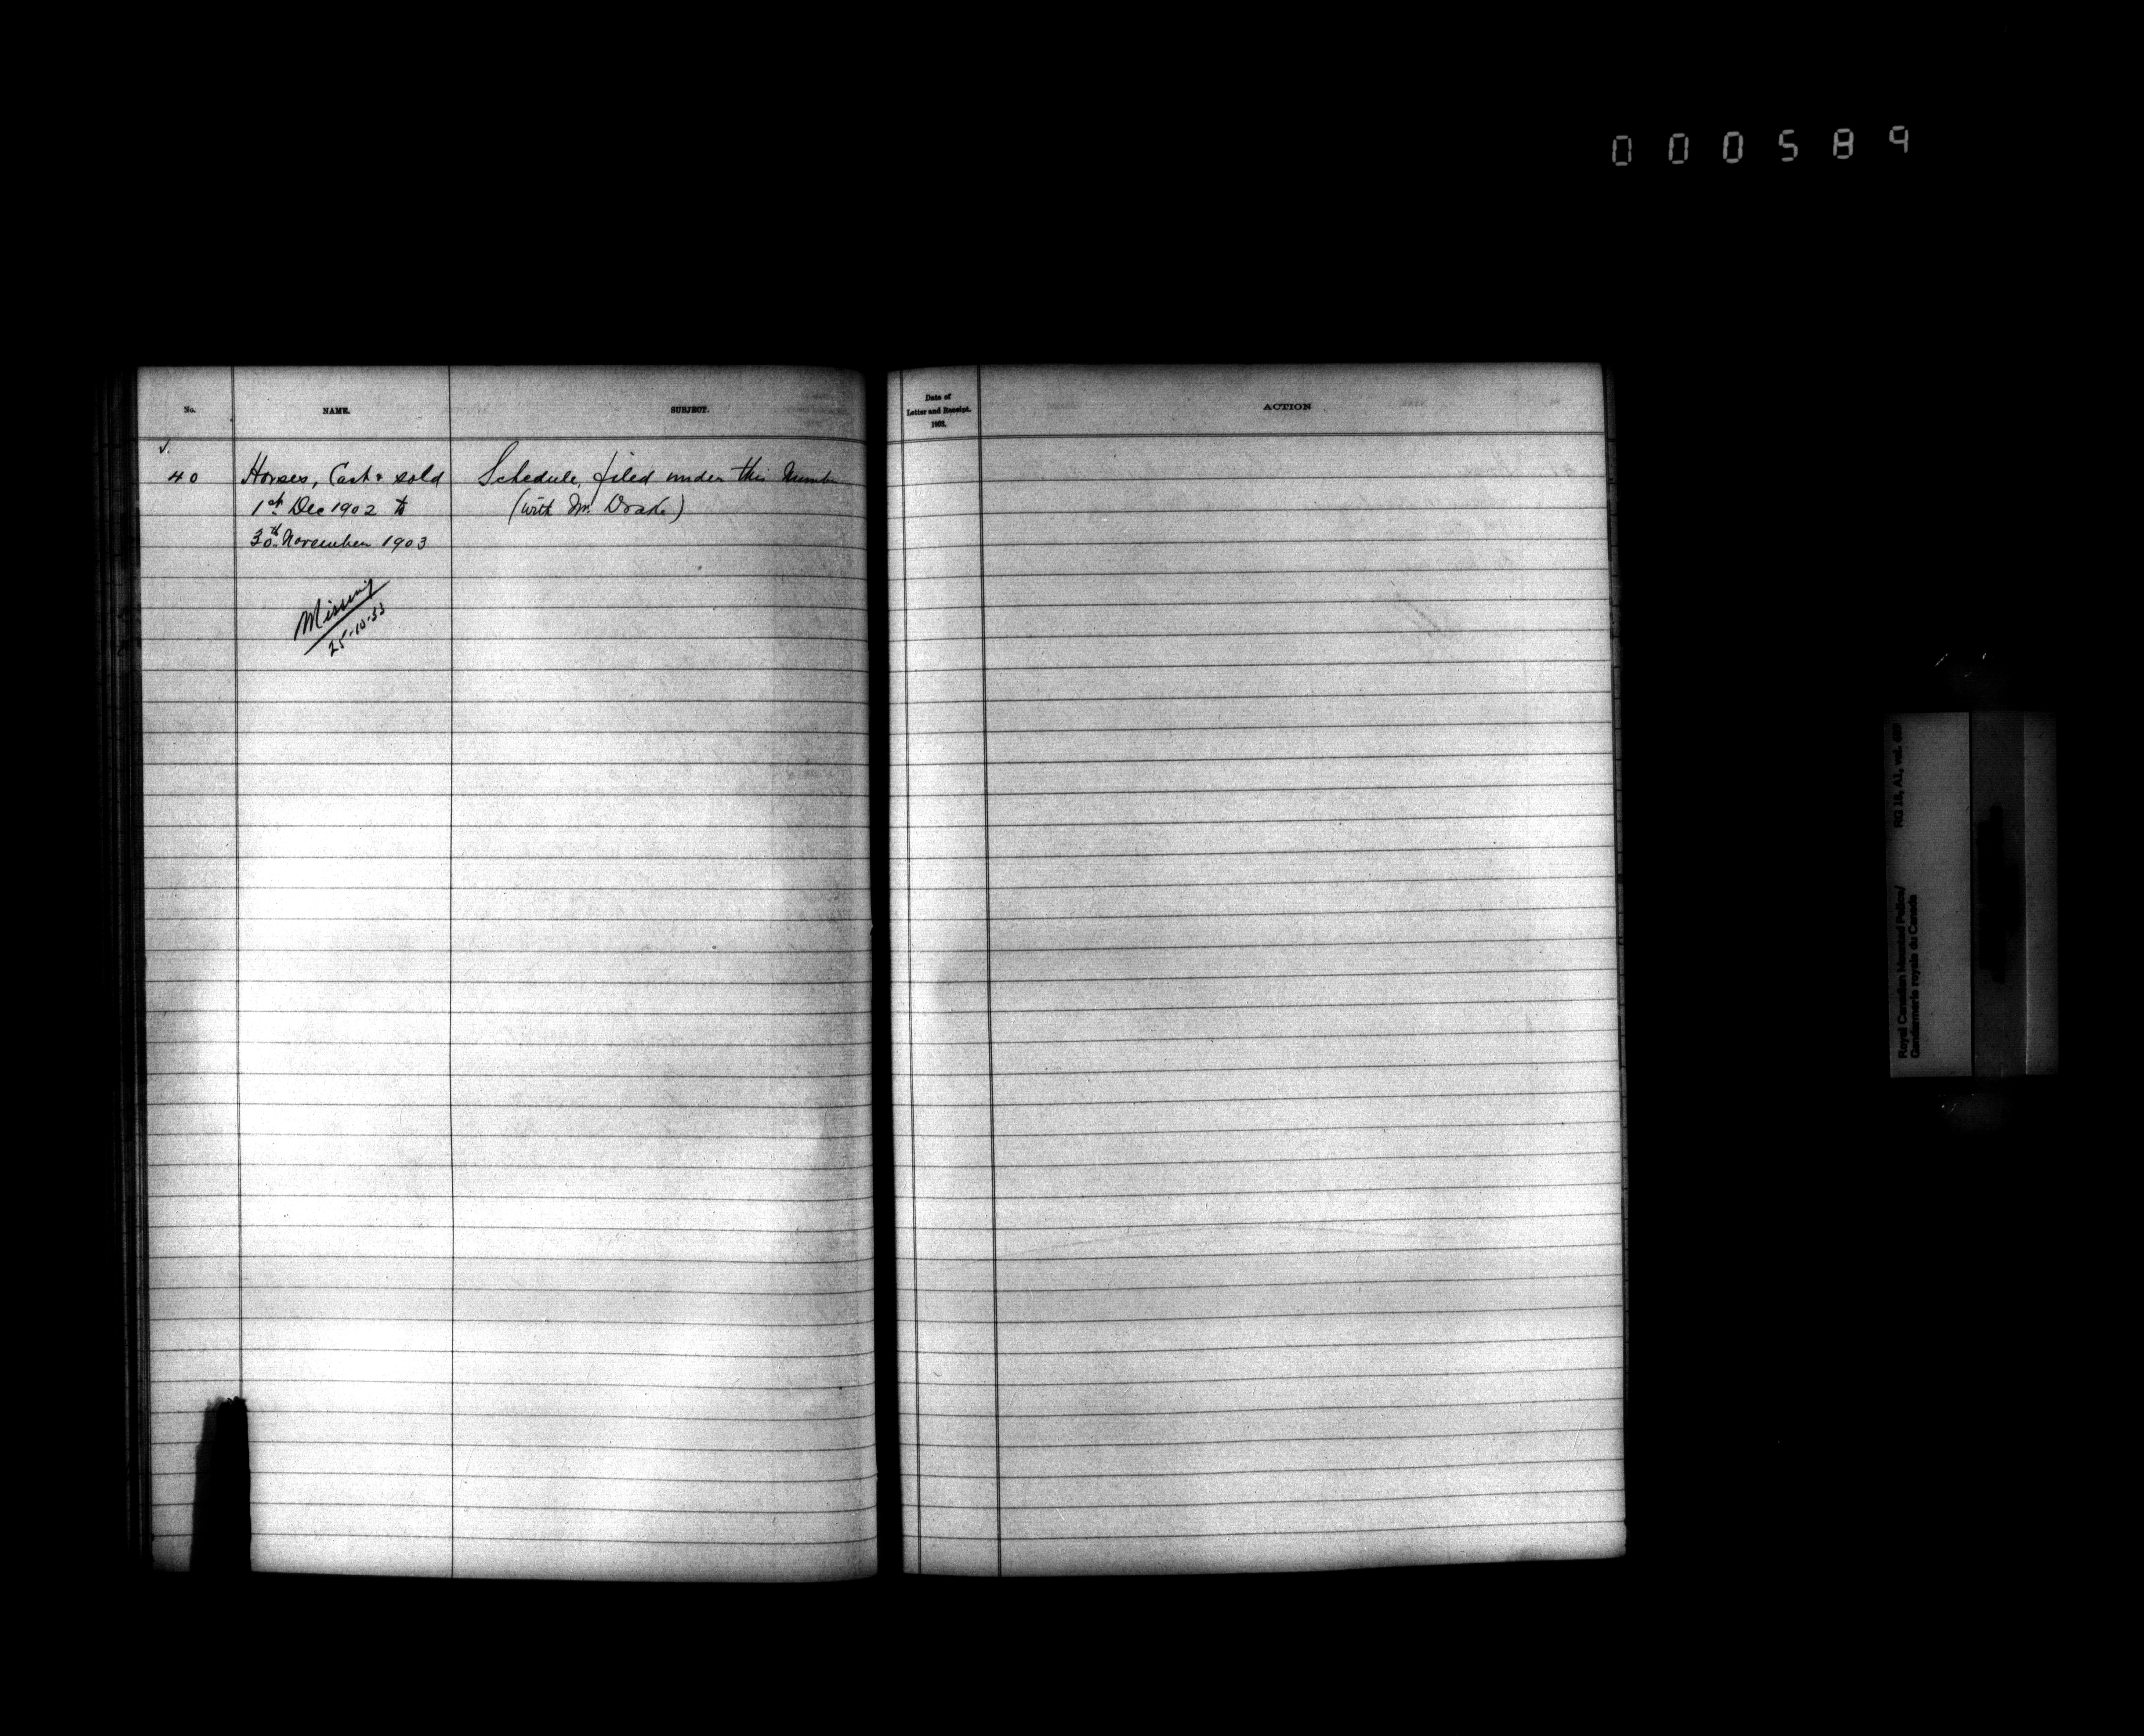 000589
No. NAME. SUBJECT. Date of
Letter and Receipt.
1903. ACTION
40 Horses, Cast & sold Schedule, filed under this Number
1st Dec 1902 to (with Mr. Drake)
30th November 1903
Missing
25-10-53
RG 18, A1, vol.
Royal Canadian Mounted Police/
Gendarmerie royale du Canada